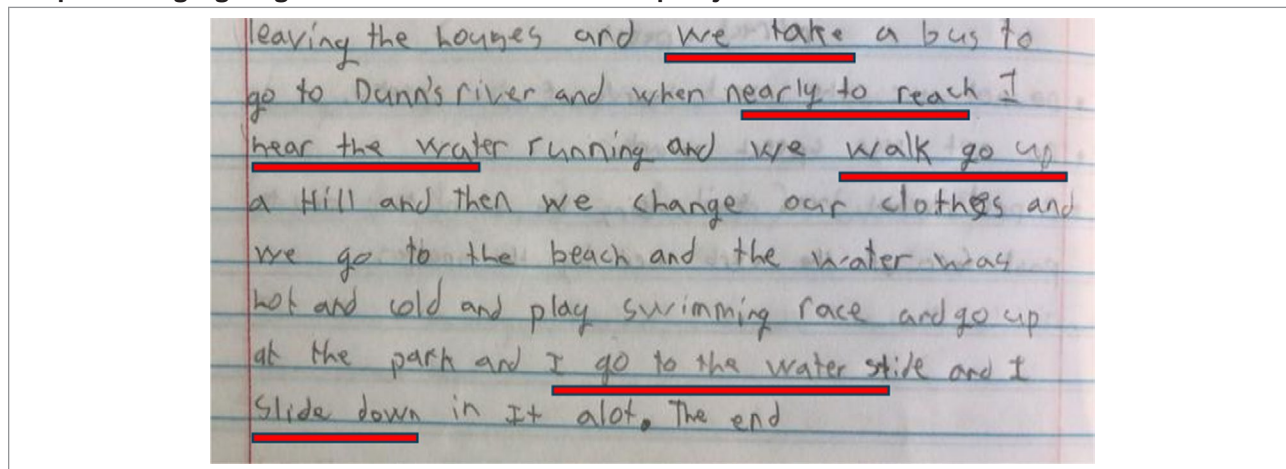 leaving the houses and we take a bus to
go to Dunn's river and when nearly to reach I
hear the water running and we walk go up
a Hill and then we change our clothes and
we go to the beach and the water was
hot and cold and play swimming race and go up
at the park and I go to the water slide and I
Slide down in It alot. The end